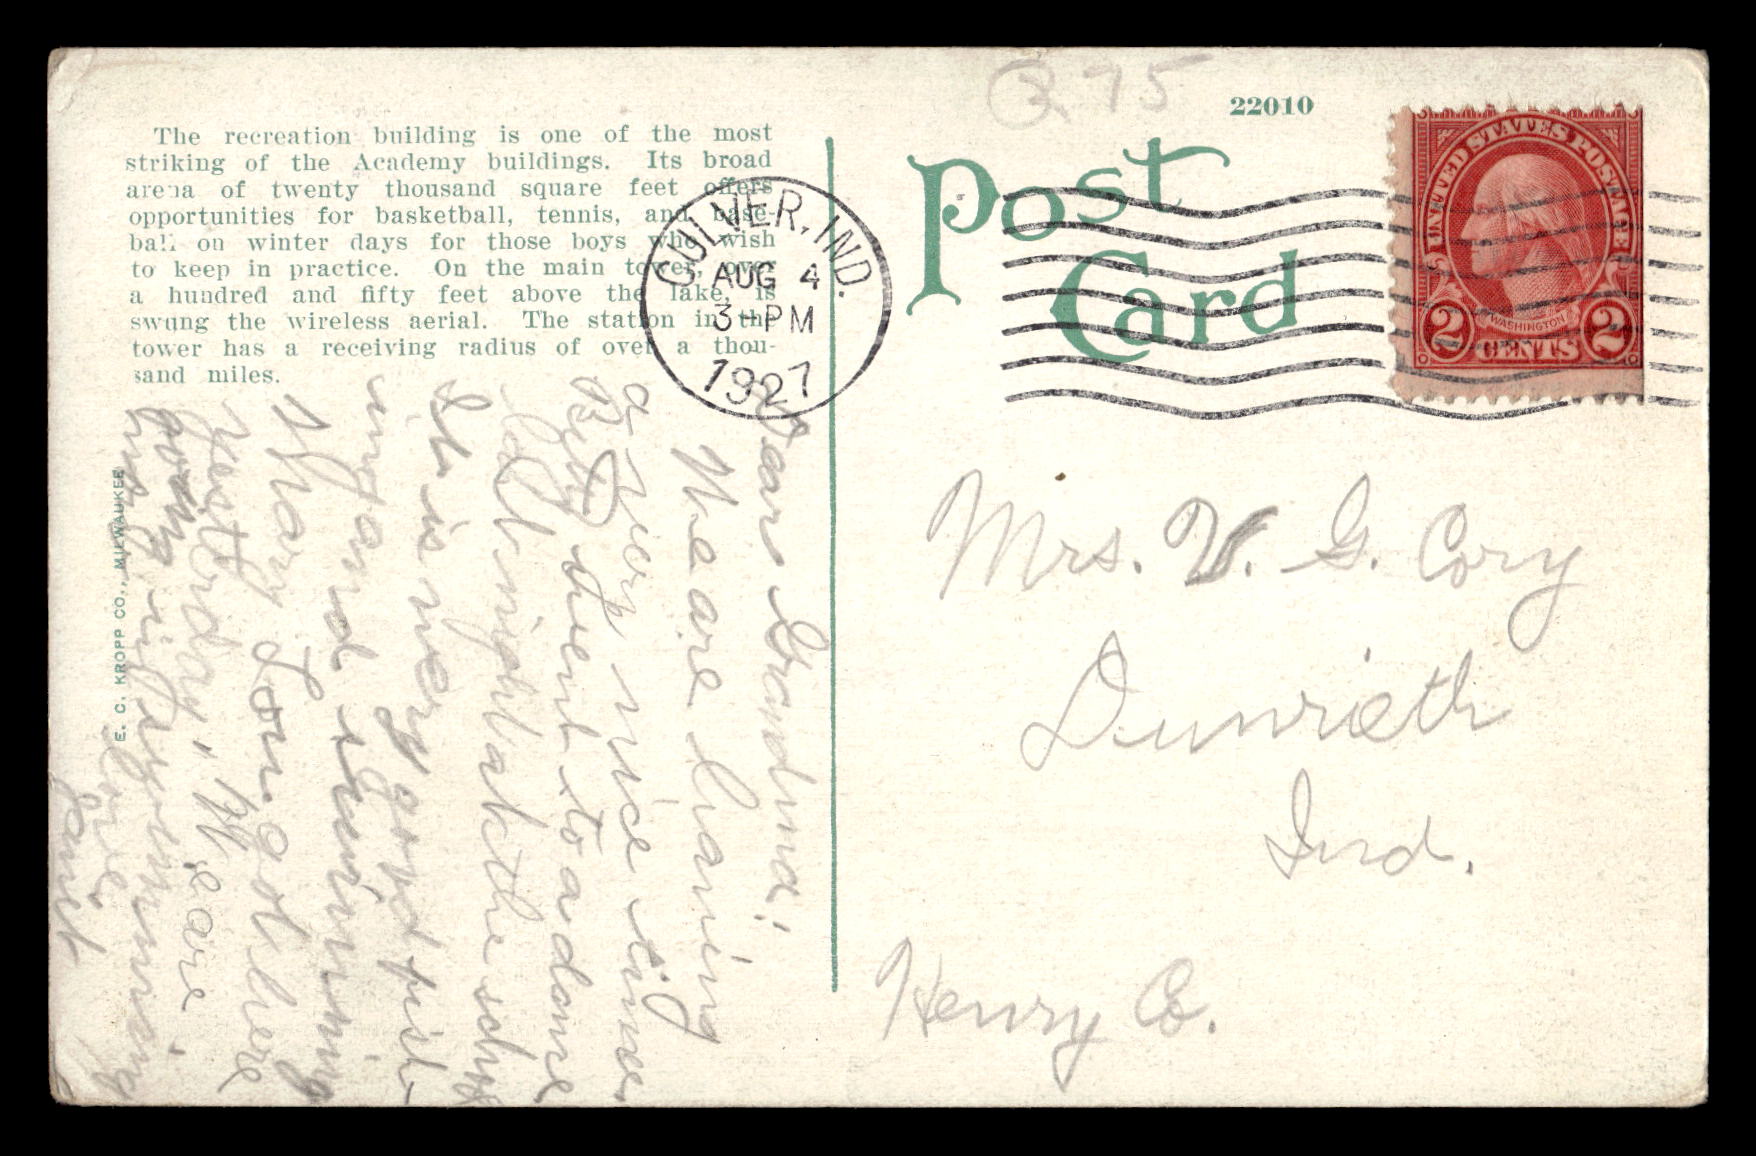 The recreation building is one of the most
striking of the Academy buildings. Its broad
arena of twenty thousand square feet offers
opportunities for basketball, tennis, and base-
ball on winter days for those boys who wish
to keep in practice. On the main tower, over
a hundred and fifty feet above the lake, is
swung the wireless aerial. The station in the
tower has a receiving radius of over a thou-
sand miles.
E. C. KROPP CO., MILWAUKEE
Dear Grandma;
We are having
a very nice time.
Betty went to a dance
last night at the school
It is very good fish-
ing and swimming
Mary Lou got here
yesterday. We are
going in swimming
Love,
Janet
CULVER, IND.
AUG 4
3-PM
1927
275
22010
Post
Card
UNITED STATES POSTAGE
WASHINGTON
2 CENTS 2
Mrs. V. G. Cory
Dunrieth
Ind.
Henry Co.